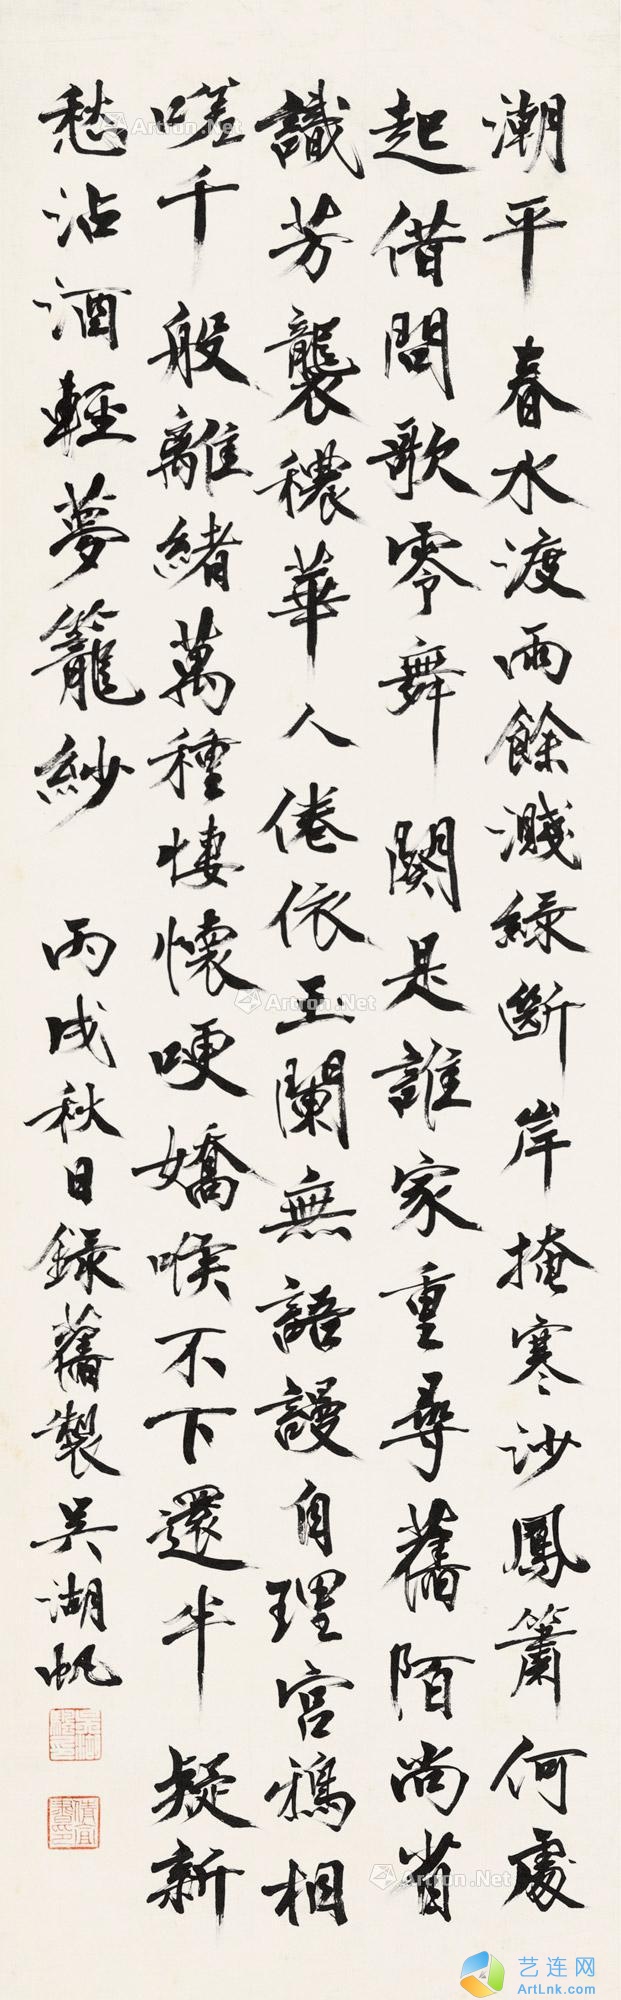 潮平春水渡雨餘濺綠斷岸掩寒沙鳳簫何處
起借問歌零舞闋是誰家重尋舊陌尚省
識芳襲穠華人倦依玉闌無語謾自理宮鴉相
嗟千般離緒萬種悽懷哽嬌喉不下還半疑新
愁沾酒輕夢籠紗
丙戌秋日錄舊製吳湖帆
Artron.Net
Artron.Net
Artron.Net
Artron.Net
Artron.Net
Artron.Net
艺连网
ArtLnk.com